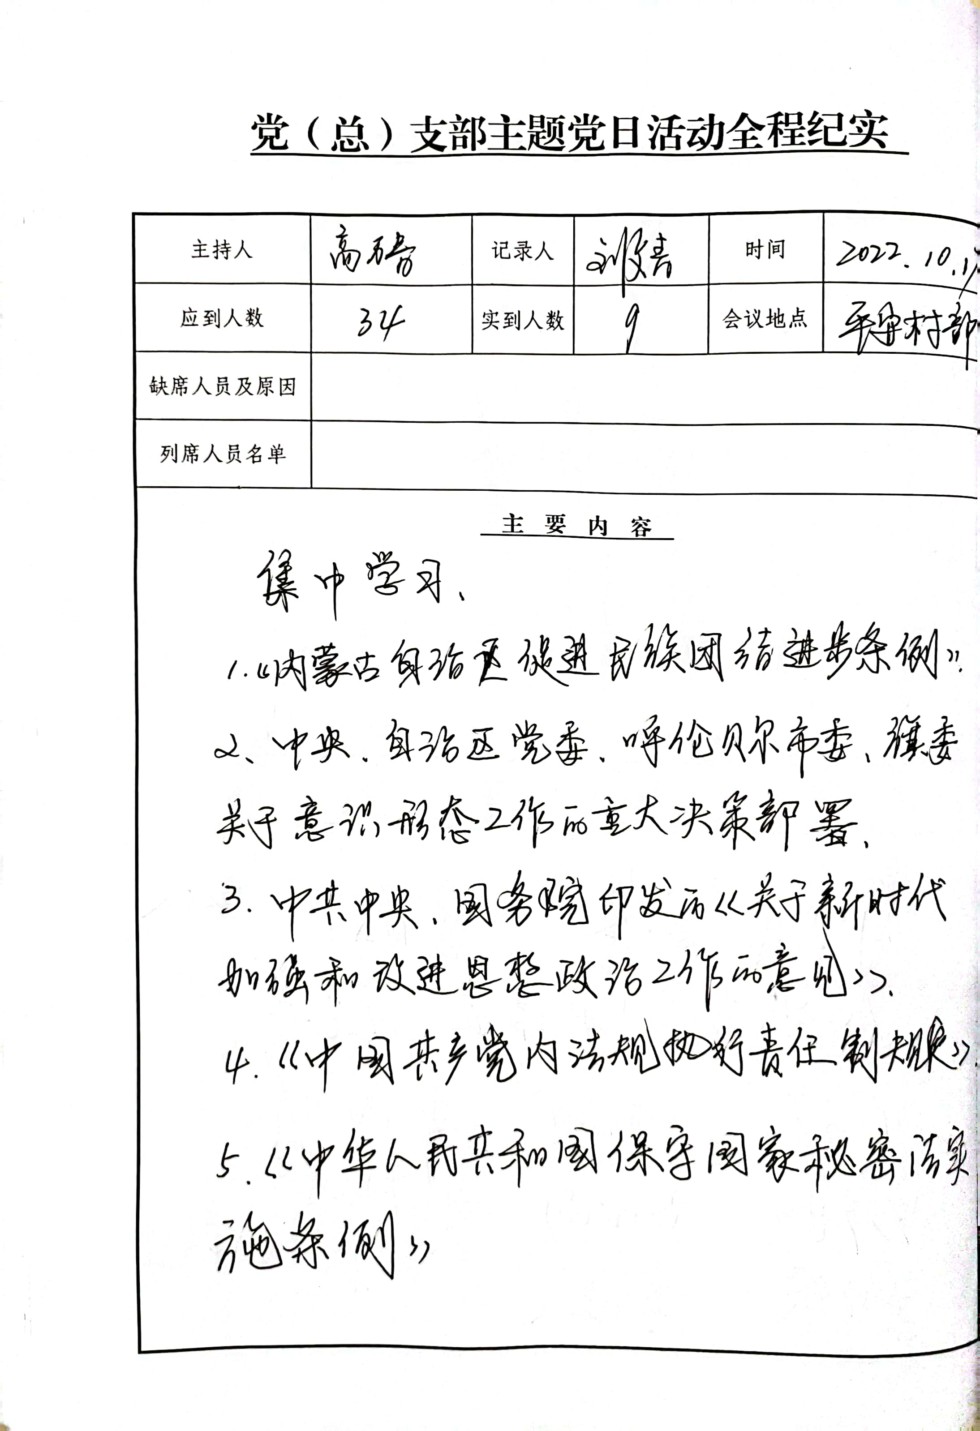 党（总）支部主题党日活动全程纪实
主持人 高 记录人 刘 时间 2022.10.
应到人数 34 实到人数 9 会议地点 平安村部
缺席人员及原因
列席人员名单
主要内容
集中学习、
1.《内蒙古自治区促进民族团结进步条例》.
2、中央、自治区党委、呼伦贝尔市委、旗委
关于意识形态工作的重大决策部署、
3.中共中央、国务院印发的《关于新时代
加强和改进思想政治工作的意见》.
4.《中国共产党内法规执行责任制规定》
5.《中华人民共和国保守国家秘密法实
施条例》